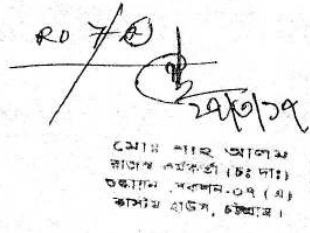 RO 7(2)
২৭/৩/১৭
মোঃ শাহ আলম
রাজস্ব কর্মকর্তা (চঃ দাঃ)
শুল্কায়ন, সেকশন-০৭ (এ)
কাস্টম হাউস, চট্টগ্রাম।